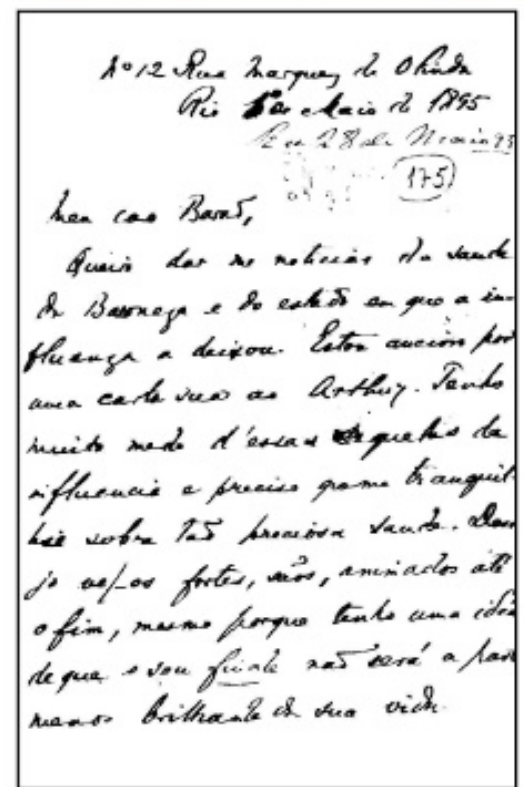 Nº 12 Rua Marquez de Olinda
Rio 1º de Maio de 1895
28 de Maio 95
175
Meu caro Barão,
Queira dar me noticias da saude
da Baroneza e do estado em que a in-
fluenza a deixou. Estou ancioso por
uma carta sua ao Arthur. Tenho
muito medo d'essas sequelas da
influencia e preciso que me tranquil-
lise sobre tão preciosa saude. Dese
jo vel-os fortes, sãos, animados até
o fim, mesmo porque tenho uma idéa
de que o seu finale não será a parte
menos brilhante da sua vida.